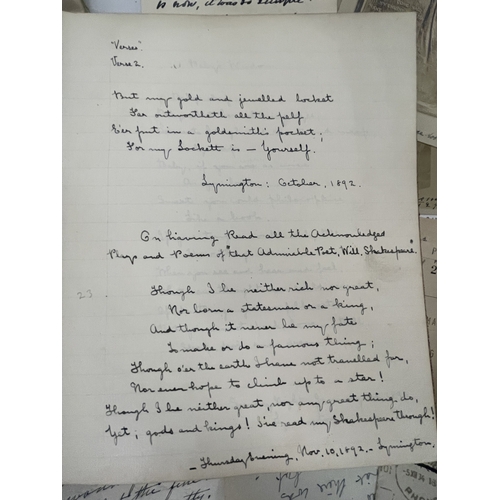 is now, it was so simple!
"Verses".
Verse 2.
But my gold and jewelled locket
Far outworteth all the pelf
E'er put in a goldsmith's pocket;
For my Lockett is — Yourself.
Lymington: October, 1892.
On having Read all the Acknowledged
Plays and Poems of "that Admirable Poet, Will. Shakespeare".
23
Though I be neither rich nor great,
Nor born a statesman or a king,
And though it never be my fate
To make or do a famous thing;
Though o'er the earth I have not travelled far,
Nor ever hope to climb up to a star!
Though I be neither great, nor any great thing do,
Yet, gods and kings! I've read my Shakespeare through!
— Thursday Evening, Nov. 10, 1892. — Lymington.